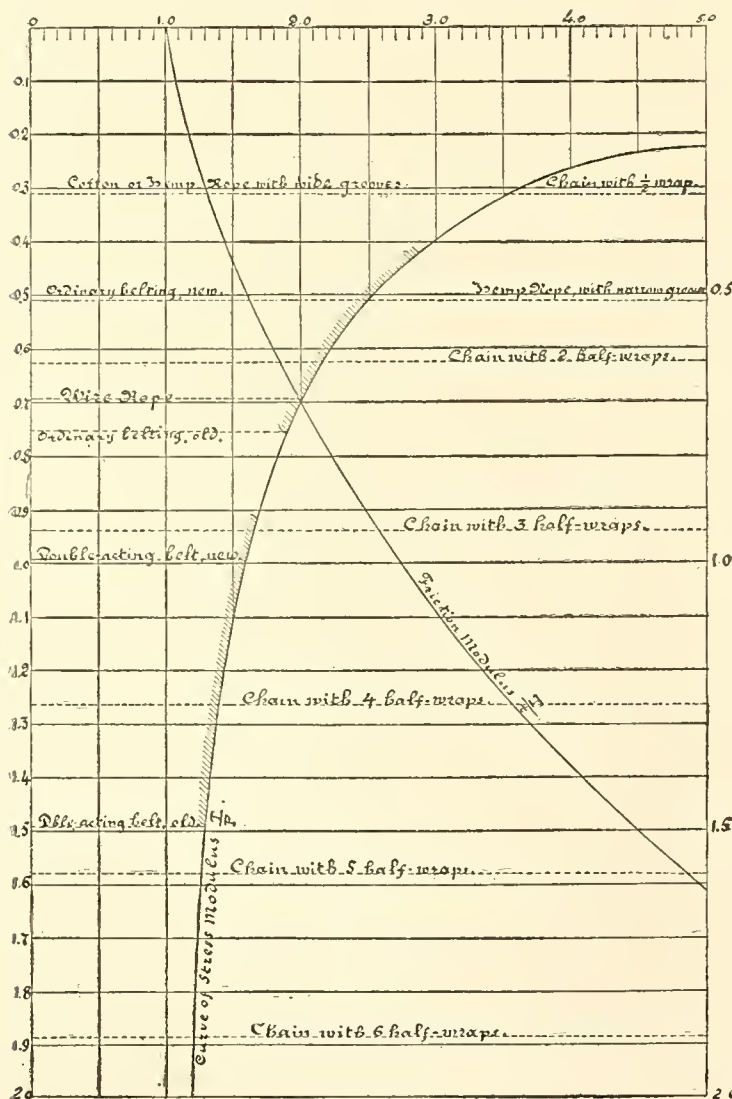 0 1.0 2.0 3.0 4.0 5.0
0.1
0.2
0.3
Cotton or Hemp Rope with wide grooves.
Chain with ½ wrap.
0.4
Ordinary belting, new.
0.5
Hemp Rope, with narrow groove
0.5
0.6
Chain with 2 half-wraps.
Wire Rope
0.7
Ordinary belting, old.
0.9
Chain with 3 half-wraps.
Double-acting belt, new.
1.0
Friction Modulus T/t
Chain with 4 half-wraps.
Dble-acting belt, old.
1.5
Chain with 5 half-wraps.
Curve of Stress Modulus
Chain with 6 half-wraps.
2.0